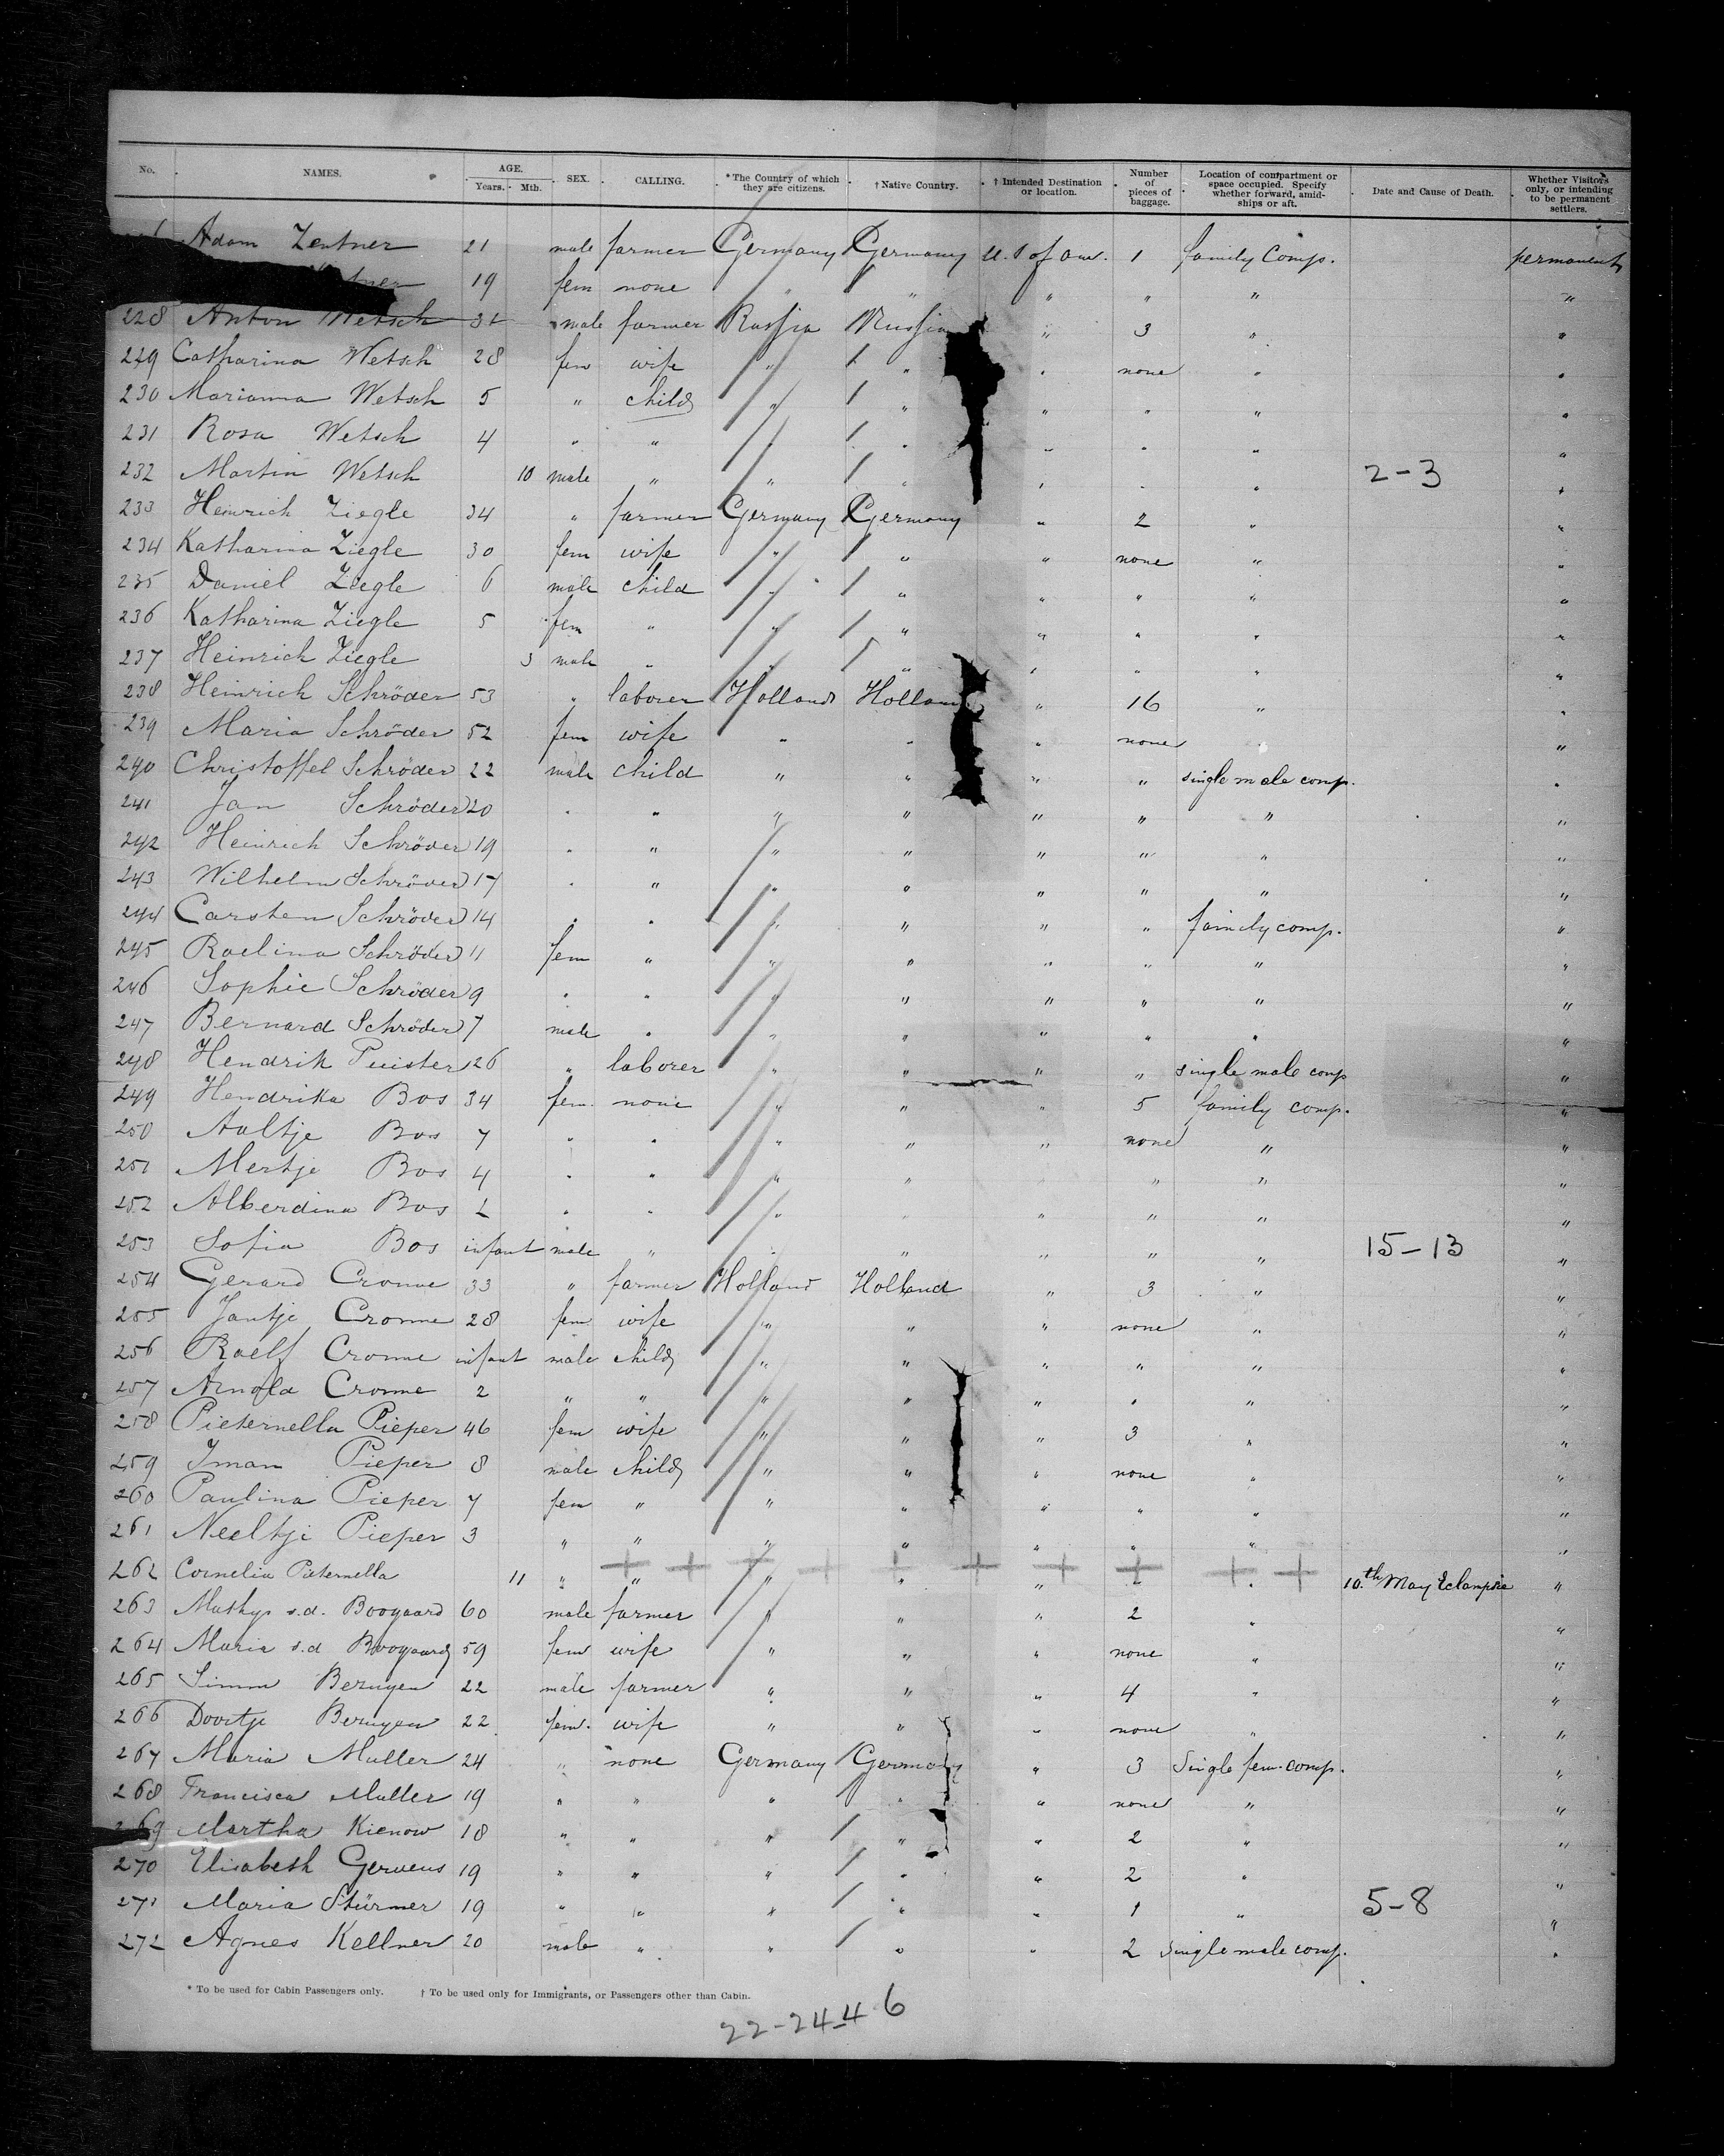 No. NAMES. AGE. Years. Mth. SEX. CALLING. *The Country of which they are citizens. †Native Country. †Intended Destination or location. Number of pieces of baggage. Location of compartment or space occupied. Specify whether forward, amidships or aft. Date and Cause of Death. Whether Visitors only, or intending to be permanent settlers.
Adam Zentner 21 male farmer Germany Germany U. S of am. 1 family Comp. permanent
19 fem none " " " " " "
228 Anton Wetsch male farmer Russia Russia " 3 " "
229 Catharina Wetsch 28 fem wife " " " none " "
230 Marianna Wetsch 5 " child " " " " " "
231 Rosa Wetsch 4 " " " " " " " "
232 Martin Wetsch 10 male " " " " " " 2-3 "
233 Heinrich Ziegle 34 " farmer Germany Germany " 2 " "
234 Katharina Ziegle 30 fem wife " " " none " "
235 Daniel Ziegle 6 male child " " " " " "
236 Katharina Ziegle 5 fem " " " " " " "
237 Heinrich Ziegle 3 male " " " " " " "
238 Heinrich Schröder 53 " laborer Holland Holland " 16 " "
239 Maria Schröder 52 fem wife " " " none " "
240 Christoffel Schröder 22 male child " " " " single male comp. "
241 Jan Schröder 20 " " " " " " " "
242 Heinrich Schröder 19 " " " " " " " "
243 Wilhelm Schröder 17 " " " " " " " "
244 Carsten Schröder 14 " " " " " " family comp. "
245 Roelina Schröder 11 fem " " " " " " "
246 Sophie Schröder 9 " " " " " " " "
247 Bernard Schröder 7 male " " " " " " "
248 Hendrik Puister 26 " laborer " " " " single male comp "
249 Hendrika Bos 34 fem. none " " " 5 family comp. "
250 Aaltje Bos 7 " " " " " none " "
251 Mertje Bos 4 " " " " " " "
252 Alberdina Bos " " " " " " "
253 Sofia Bos infant male " " " " " " 15-13 "
254 Gerard Cromme 33 " farmer Holland Holland " 3 " "
255 Jantje Cromme 28 fem wife " " " none " "
256 Roelf Cromme infant male child " " " " " "
257 Arnold Cromme 2 " " " " " " " "
258 Pieternella Pieper 46 fem wife " " " 3 " "
259 Iman Pieper 8 male child " " " none " "
260 Paulina Pieper 7 fem " " " " " " "
261 Neeltje Pieper 3 " " " " " " " "
262 Cornelia Pieternella 11 " " " " " " " 10.th May Eclampsie "
263 Mathys v.d. Boogaard 60 male farmer " " " 2 " "
264 Maria v.d Boogaard 59 fem wife " " " none " "
265 Simon 22 male farmer " " " 4 " "
266 Doortje 22 fem. wife " " " none " "
267 Maria Muller 24 " none Germany Germany " 3 Single fem. comp. "
268 Francisca Muller 19 " " " " " none " "
269 Martha Kienow 18 " " " " " 2 " "
270 Elisabeth Gervens 19 " " " " " 2 " "
271 Maria Stürmer 19 " " " " " 1 " 5-8 "
272 Agnes Kellner 20 male " " " " 2 single male comp. "
* To be used for Cabin Passengers only. † To be used only for Immigrants, or Passengers other than Cabin.
22-24-46